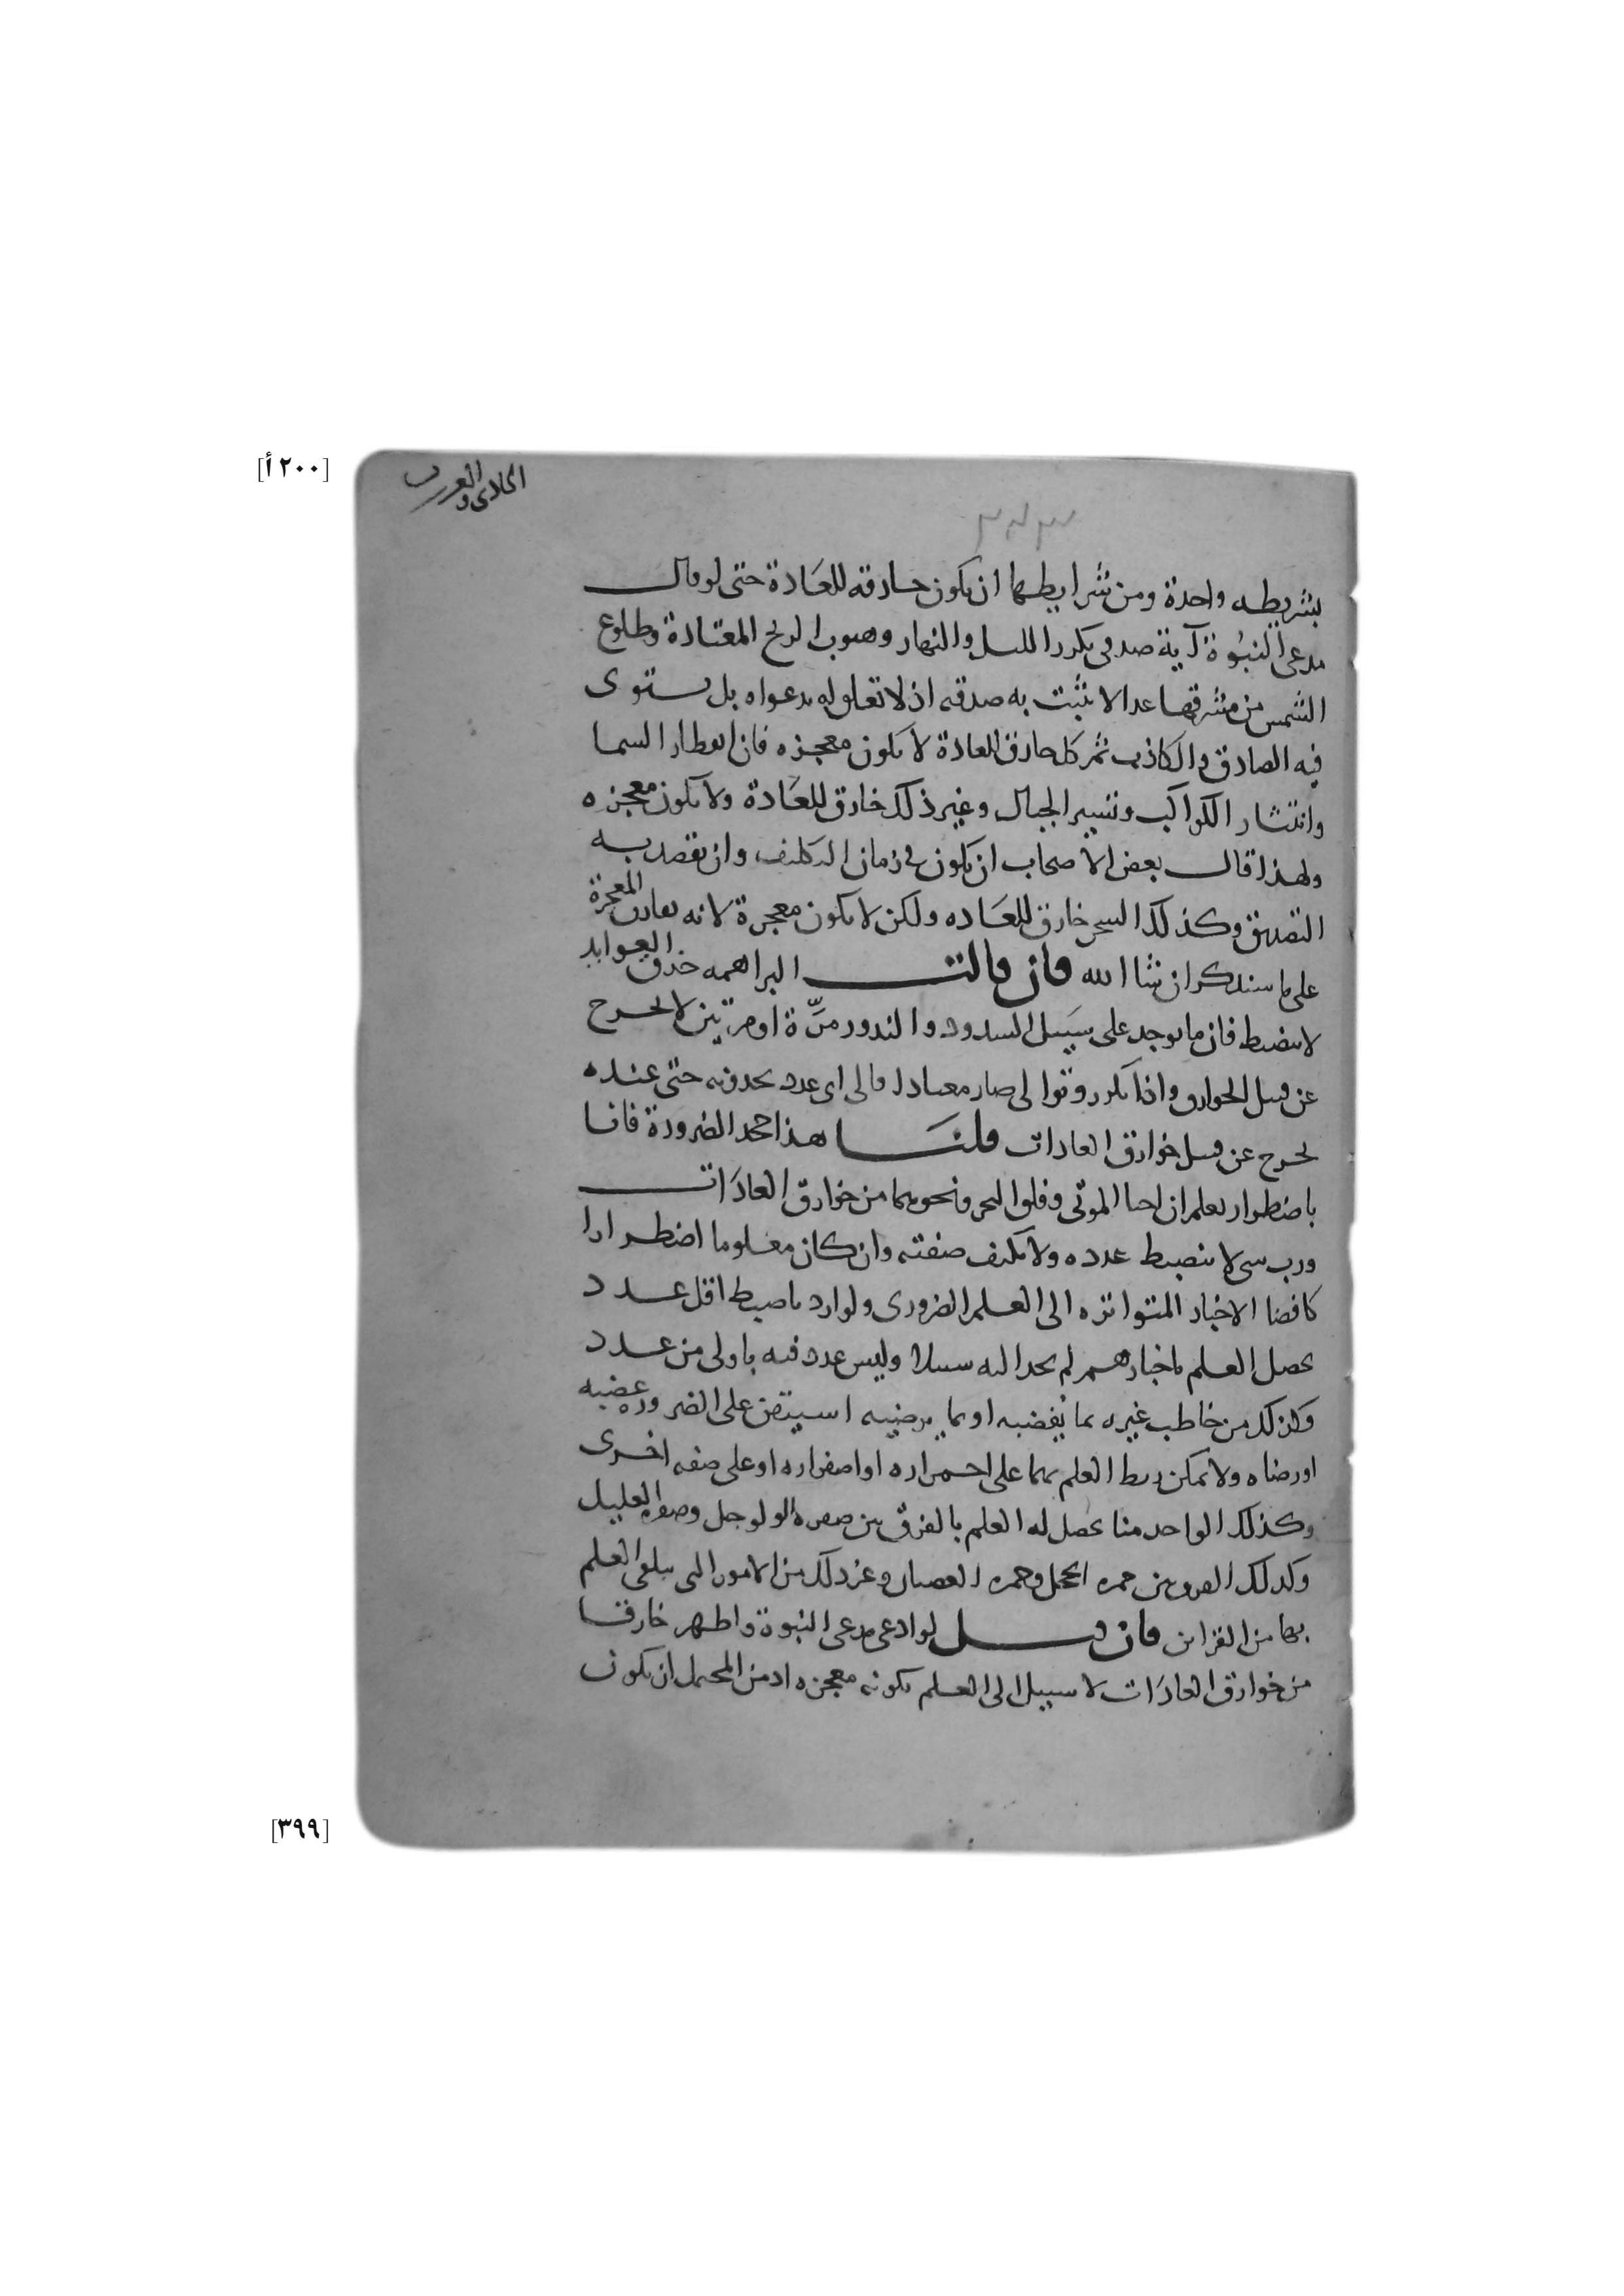 [٢٠٠ أ]
بشريطه واحدة ومن شرايطها ان يكون خارقه للعَادة حتى لو قال
مدعى النبُوة آية صدقى تكرر الليل والنهار وهبوب الريح المعتادة وطلوع
الشمس من مشرقها غدا لا يثبت به صدقه اذ لا تعلق له بدعواه بل يستوى
فيه الصادق والكاذب ثم كل خارق للعادة لا يكون معجزه فان انفطار السما
وانتشار الكواكب وتسيير الجبال وغير ذلك خارق للعَادة ولا يكون معجزه
ولهذا قال بعض الاصحاب ان يكون فى زمان التكليف وان يقصد به
التصديق وكذلك السحر خارق للعَاده ولكن لا يكون معجزة لانه يفارق المعجزة
على ما سنذكر ان شا الله فان قالت البراهمه خرق العوايد
لا ينضبط فان ما يوجد على سَبيل الشذوذ والندور مرَّة او مرتين لا يخرج
عن قبيل الخوارق واذا تكرر وتوالى صار معتادا فالى اى عدد يحدونه حتى عنده
يخرج عن قبيل خوارق العادات قلنَا هذا جحد الضرورة فانا
باضطرار نعلم ان احيا الموتى وفلق البحر ونحوهما من خوارق العادَات
ورب شى لا ينضبط عدده ولا تكيف صفته وان كان معلوما اضطرارا
كافضا الاخبار المتواتره الى العلم الضرورى ولو اردنا ضبط اقل عدد
يحصل العلم باخبارهم لم نجد اليه سبيلا وليس عدد فيه باولى من عدد
وكذلك من خاطب غيره بما يُغضبه او بما يرضيه استيقن على الضروره غضبه
او رضاه ولا يمكن ربط العلم بهما على احمراره او اصفراره او على صفه اخرى
وكذلك الواحد منا يحصل له العلم بالفرق بين صفره الوجل وصفره العليل
وكذلك الفرق بين حمره الخجل وحمره الغضبان وغير ذلك من الامور التى يتلقى العلم
بها من القراين فان قيل لو ادعى مدعى النبوة واظهر خارقا
من خوارق العادَات لا سبيل الى العلم بكونه معجزه اذ من المحتمل ان يكون
[٣٩٩]